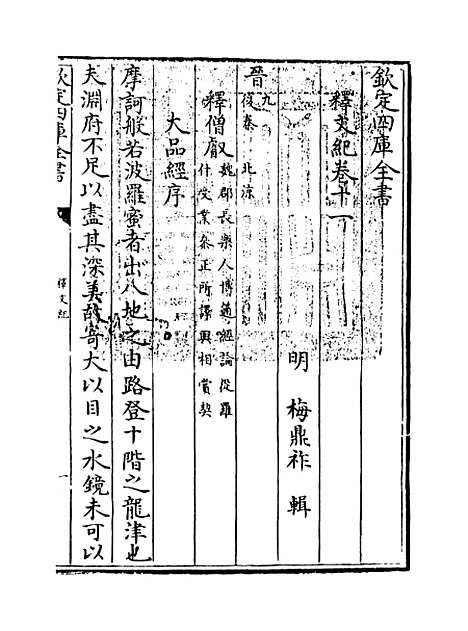 欽定四庫全書
釋文紀卷十一
明 梅鼎祚 輯
晉九
後秦 北涼
釋僧叡
魏郡長樂人博通經論從羅
什受業參正所譯興相賞契
大品經序
摩訶般若波羅蜜者出八地之由路登十階之龍津也
夫淵府不足以盡其深美故寄大以目之水鏡未可以
欽定四庫全書
釋文紀
一